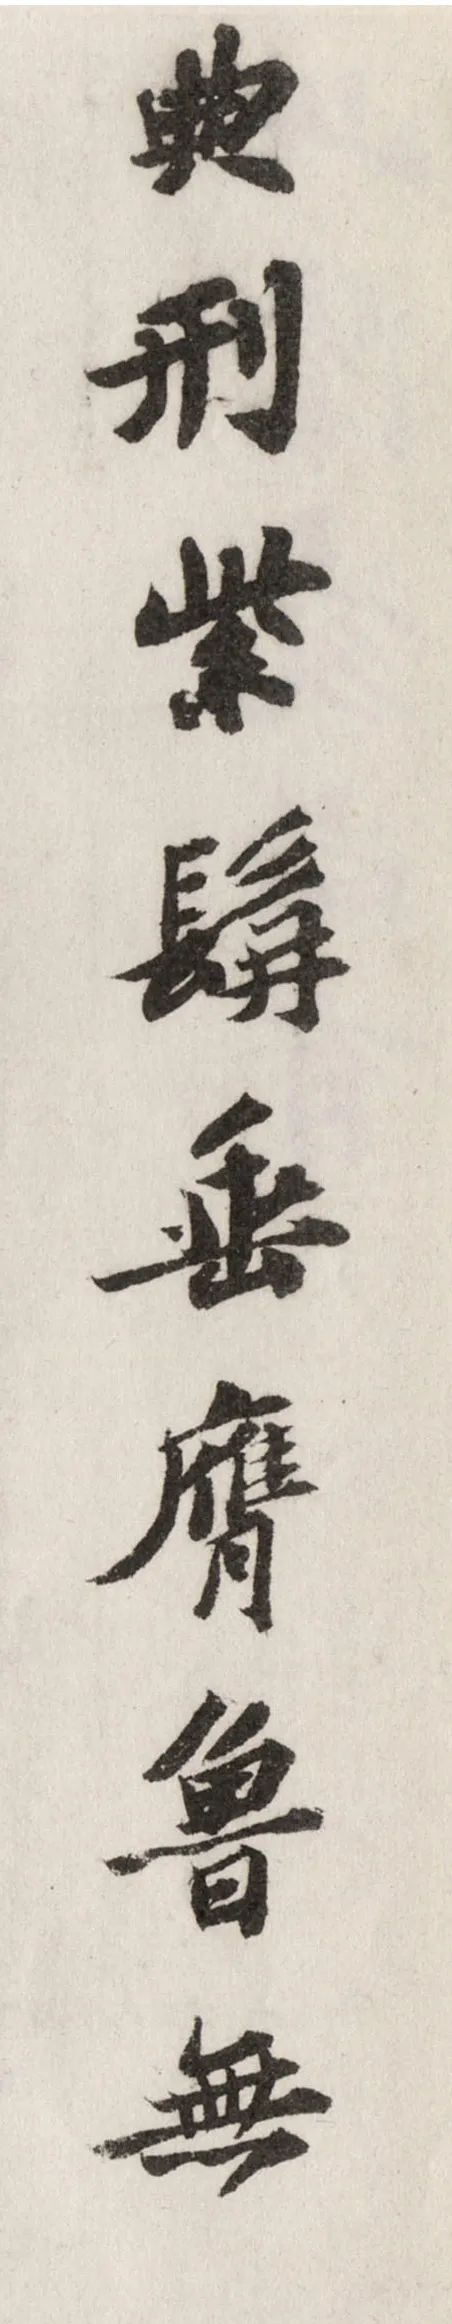 典刑紫髯垂膺魯無